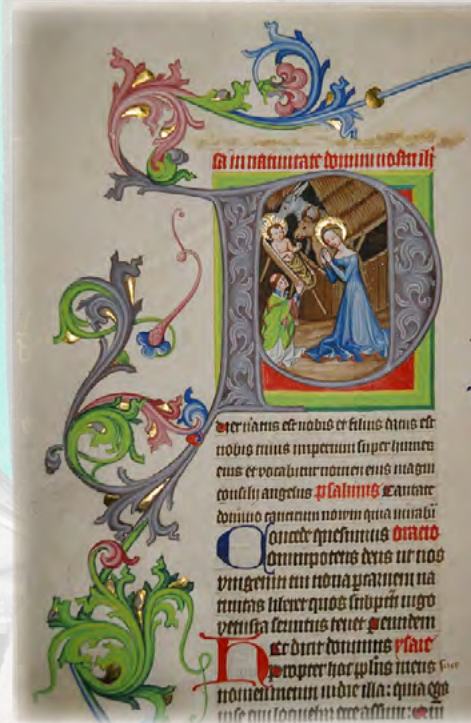 sa in natiuitate domini nostri ihu
Puer natus est nobis et filius datus est
nobis cuius imperium super humeru
eius et vocabitur nomen eius magni
consilij angelus psalmus Cantate
domino canticum nouum quia mirabi
Concede quesumus oratio
omnipotens deus ut nos
vnigeniti tui noua p carnem na
tiuitas liberet quos sub pcti iugo
vetusta seruitus tenet p eundem
Hec dicit dominus ysaie
propter hoc pplus meus sciet
nomen meum in die illa: quia ego
ipse qui loquebar ecce assum: